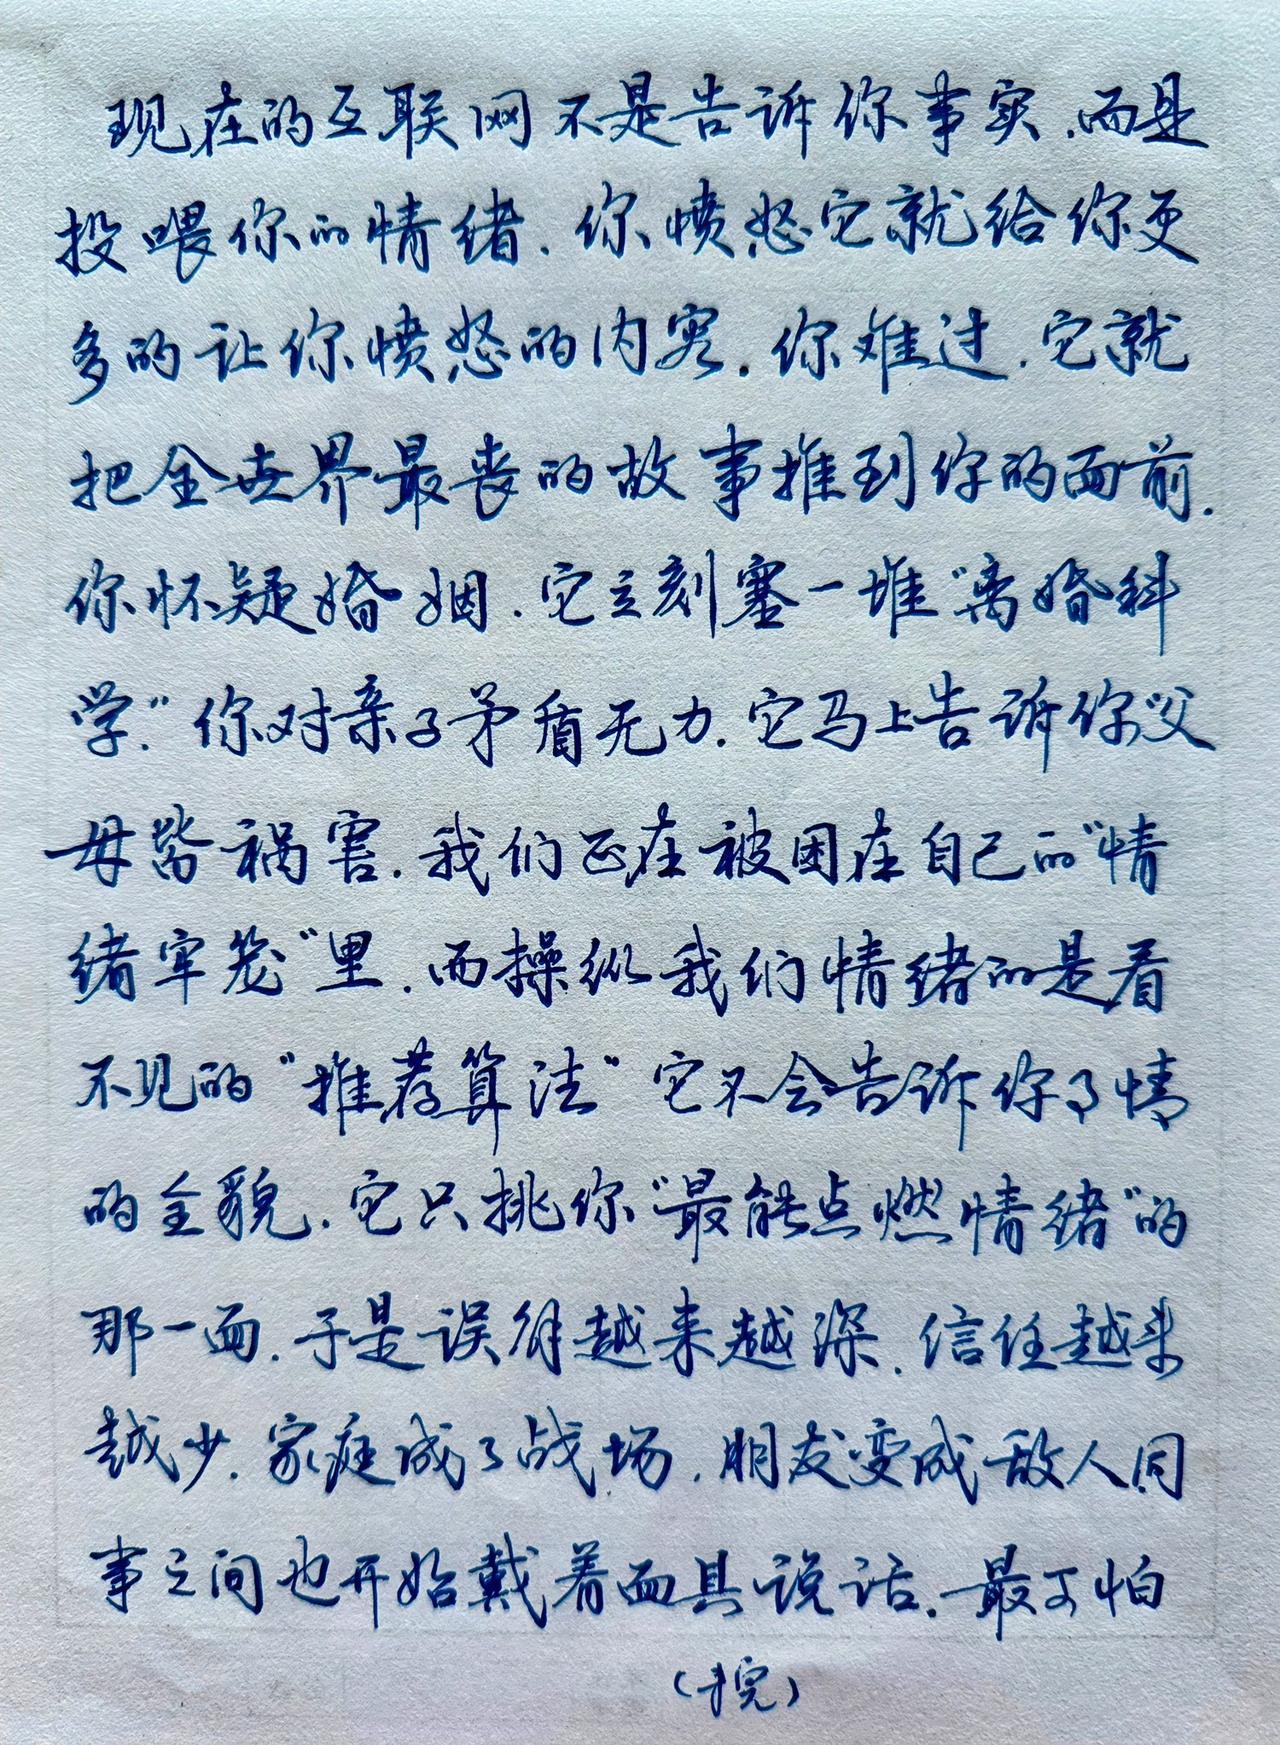 现在的互联网不是告诉你事实.而是
投喂你的情绪.你愤怒它就给你更
多的让你愤怒的内容.你难过.它就
把全世界最丧的故事推到你的面前.
你怀疑婚姻.它立刻塞一堆"离婚科
学."你对亲子矛盾无力.它马上告诉你"父
母皆祸害.我们正在被困在自己的"情
绪牢笼"里.而操纵我们情绪的是看
不见的"推荐算法"它不会告诉你事情
的全貌.它只挑你"最能点燃情绪"的
那一面.于是误解越来越深.信任越来
越少.家庭成了战场.朋友变成敌人.同
事之间也开始戴着面具说话.最可怕
(未完)